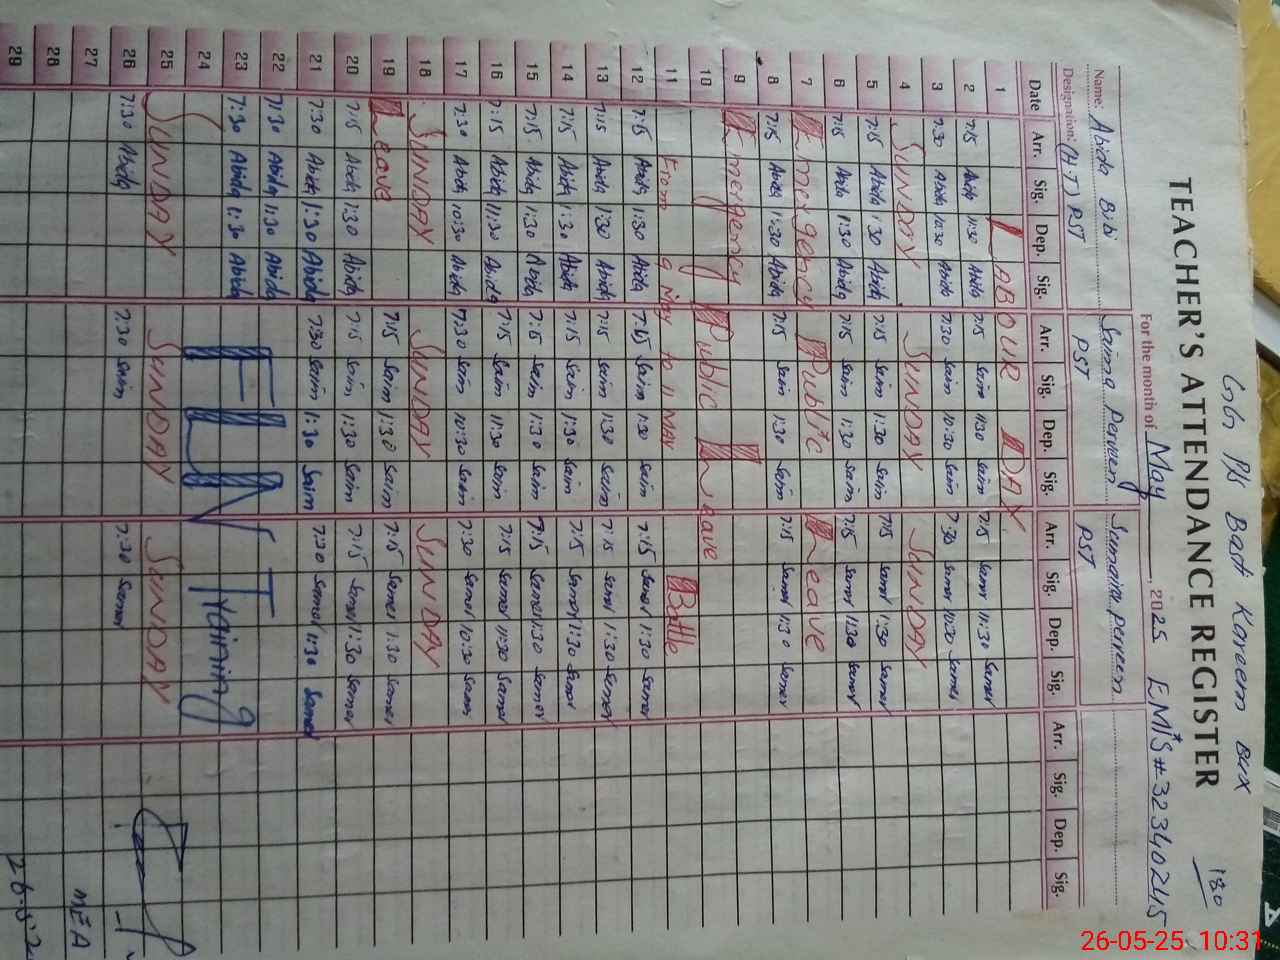 GG PS Basti Kareem Bux
180
TEACHER'S ATTENDANCE REGISTER
For the month of May, 2025 EMIS # 32340245
Name: Abida Bibi Saima Perveen Sumaira perveen
Designation: (H.T) PST PST PST
Date Arr. Sig. Dep. Sig. Arr. Sig. Dep. Sig. Arr. Sig. Dep. Sig. Arr. Sig. Dep. Sig.
1 LABOUR DAY
2 7:15 Abida 11:30 Abida 7:15 Saim 11:30 Saim 7:15 Samer 11:30 Samer
3 7:30 Abida 10:30 Abida 7:30 Saim 10:30 Saim 7:30 Samer 10:30 Samer
4 SUNDAY SUNDAY SUNDAY
5 7:15 Abida 1:30 Abida 7:15 Saim 1:30 Saim 7:15 Samer 1:30 Samer
6 7:15 Abida 1:30 Abida 7:15 Saim 1:30 Saim 7:15 Samer 1:30 Samer
7 Emergency Public Leave
8 7:15 Abida 1:30 Abida 7:15 Saim 1:30 Saim 7:15 Samer 1:30 Samer
9 Emergency Public Leave
10
11 From 9 May to 11 May Battle
12 7:15 Abida 1:30 Abida 7:15 Saim 1:30 Saim 7:15 Samer 1:30 Samer
13 7:15 Abida 1:30 Abida 7:15 Saim 1:30 Saim 7:15 Samer 1:30 Samer
14 7:15 Abida 1:30 Abida 7:15 Saim 1:30 Saim 7:15 Samer 1:30 Samer
15 7:15 Abida 1:30 Abida 7:15 Saim 1:30 Saim 7:15 Samer 1:30 Samer
16 7:15 Abida 11:30 Abida 7:15 Saim 11:30 Saim 7:15 Samer 11:30 Samer
17 7:30 Abida 10:30 Abida 7:30 Saim 10:30 Saim 7:30 Samer 10:30 Samer
18 SUNDAY SUNDAY SUNDAY
19 Leave 7:15 Saim 1:30 Saim 7:15 Samer 1:30 Samer
20 7:15 Abida 1:30 Abida 7:15 Saim 1:30 Saim 7:15 Samer 1:30 Samer
21 7:30 Abida 1:30 Abida 7:30 Saim 1:30 Saim 7:30 Samer 1:30 Samer
22 7:30 Abida 1:30 Abida
23 7:30 Abida 1:30 Abida FLN Training
24
25 SUNDAY SUNDAY SUNDAY
26 7:30 Abida 7:30 Saim 7:30 Samer
27 MEA
28
29
26-05-25 10:31